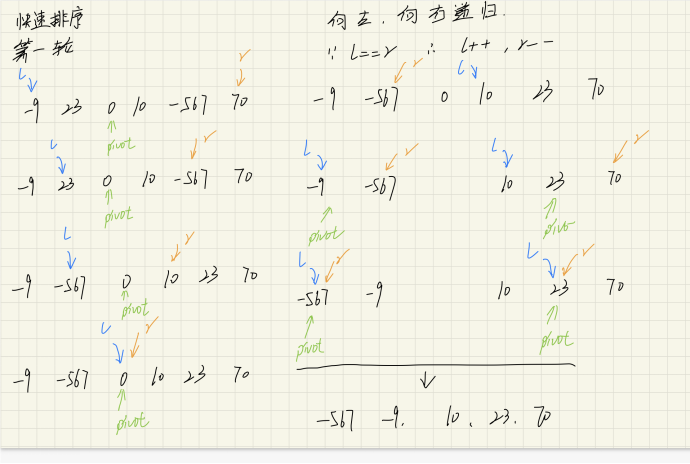 快速排序
第一轮
l r
-9 23 0 10 -567 70
pivot
l r
-9 23 0 10 -567 70
pivot
l r
-9 -567 0 10 23 70
pivot
l r
-9 -567 0 10 23 70
pivot
向左,向右递归.
∵ l==r ∴ l++ , r--
r l
-9 -567 0 10 23 70
l r l r
-9 -567 10 23 70
pivot pivot
l r l r
-567 -9 10 23 70
pivot pivot
-567 -9. 10 . 23. 70